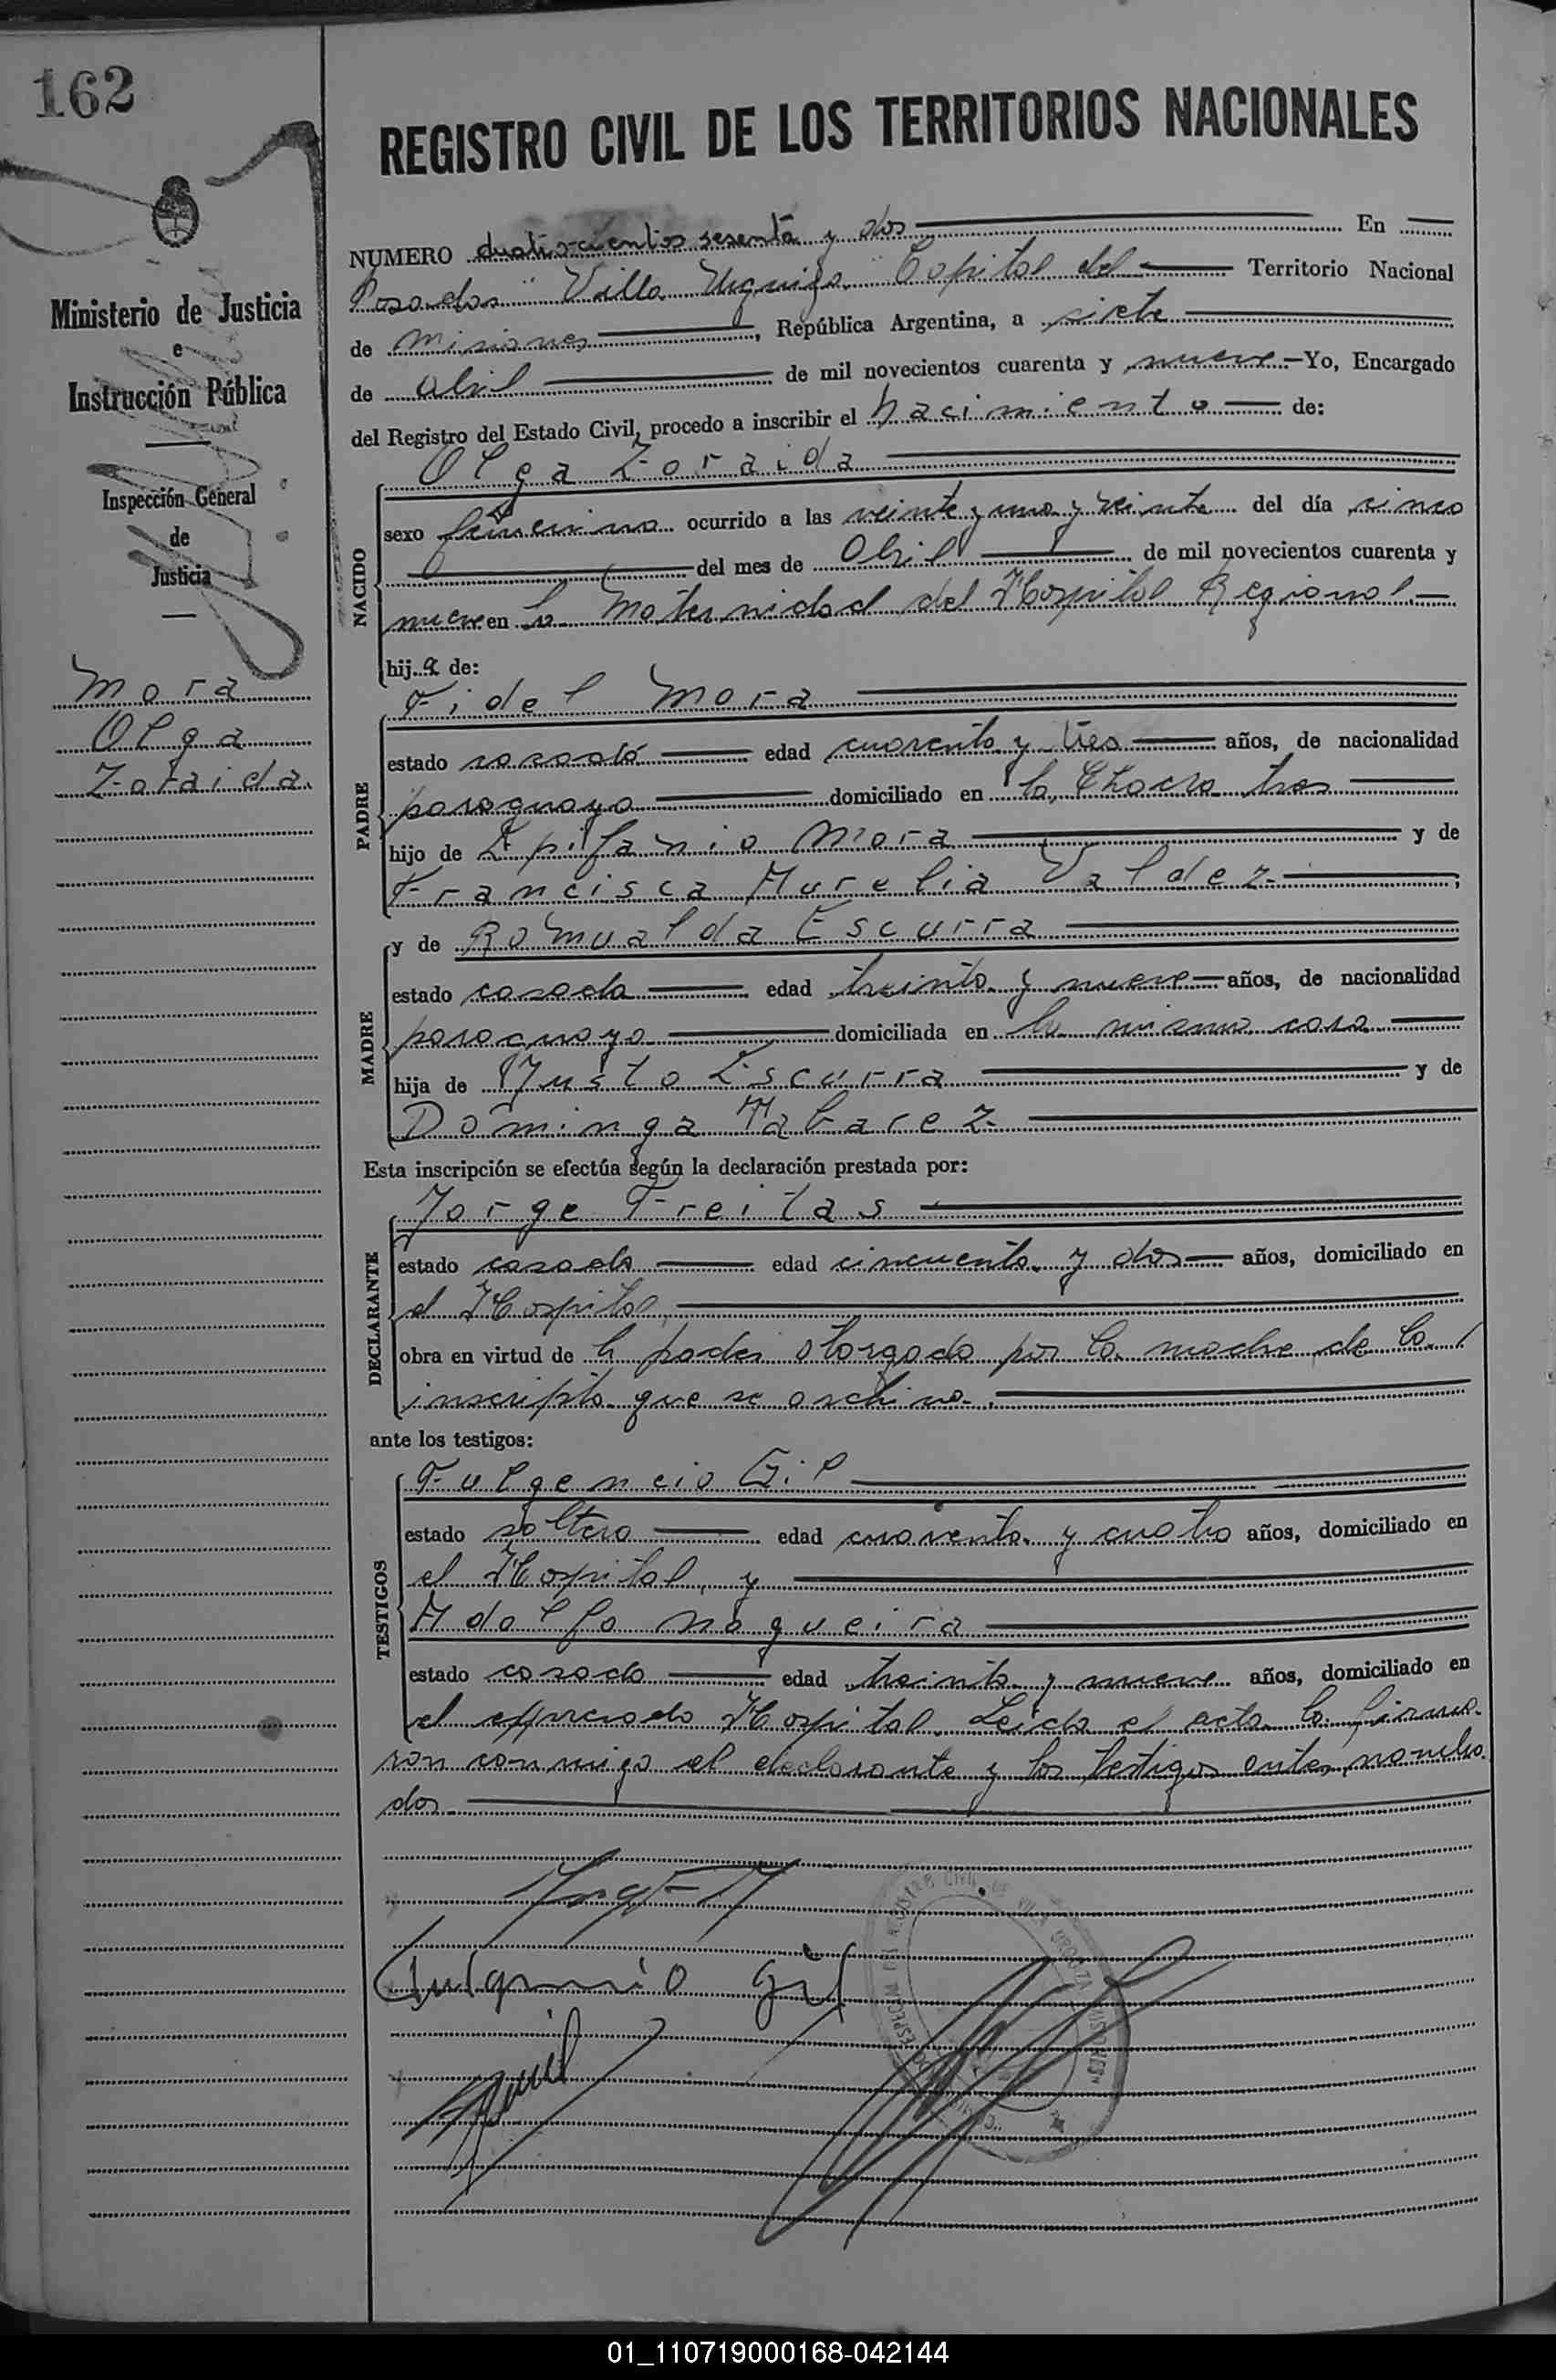 162
REGISTRO CIVIL DE LOS TERRITORIOS NACIONALES
Ministerio de Justicia
e
Instrucción Pública
Inspección General
de
Justicia
Mora
Olga
Zoraida
NUMERO cuatrocientos sesenta y dos En
Posadas "Villa Urquiza" Capital del Territorio Nacional
de Misiones, República Argentina, a siete
de abril de mil novecientos cuarenta y nueve Yo, Encargado
del Registro del Estado Civil, procedo a inscribir el nacimiento de:
NACIDO
Olga Zoraida
sexo femenino ocurrido a las veinte y una y veinte del día cinco
del mes de Abril de mil novecientos cuarenta y
nueve en la Maternidad del Hospital Regional.
hija de:
PADRE
Fidel Mora
estado casado edad cuarenta y tres años, de nacionalidad
paraguaya domiciliado en la Chacra tres
hijo de Epifanio Mora y de
Francisca Aurelia Valdez;
MADRE
y de Romualda Escurra
estado casada edad treinta y nueve años, de nacionalidad
paraguaya domiciliada en la misma casa
hija de Justo Escurra y de
Dominga Tabarez
Esta inscripción se efectúa según la declaración prestada por:
DECLARANTE
Jorge Freitas
estado casado edad cincuenta y dos años, domiciliado en
el Hospital,
obra en virtud de poder otorgado por la madre de la
inscripta que se archiva.
ante los testigos:
TESTIGOS
Fulgencio Gil
estado soltero edad cuarenta y cuatro años, domiciliado en
el Hospital, y
Adolfo Nogueira
estado casado edad treinta y nueve años, domiciliado en
el expresado Hospital. Leída el acta la firma-
ron conmigo el declarante y los testigos antes nombra
dos.
Fulgencio Gil
01_110719000168-042144